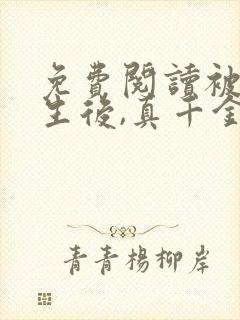 免費閱讀被
生後,真千金
青青楊柳岸